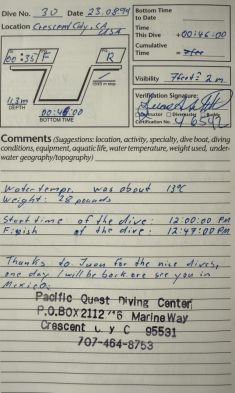 Dive No. 30 Date 23.08.94
Location Crescent City, CA
USA
Bottom Time
to Date
Time
This Dive +00:46:00
Cumulative
Time
00:35 F
R
Visibility 7feet = 2m
Verification Signature:
Instructor Divemaster Buddy
Certification No.
11.3m
DEPTH
00:46:00
BOTTOM TIME
Comments (Suggestions: location, activity, specialty, dive boat, diving
conditions, equipment, aquatic life, water temperature, weight used, under-
water geography/topography)
Water tempr. was about 13°C
Weight: 28 pounds
Start time of the dive: 12:00:00 PM
Finish of the dive: 12:47:00 PM
Thanks to Juan for the nice dives,
one day I will be back or see you in
Mexico!
Pacific Quest Diving Center
P.O.BOX 2112 Marine Way
Crescent C Y C 95531
707-464-8753